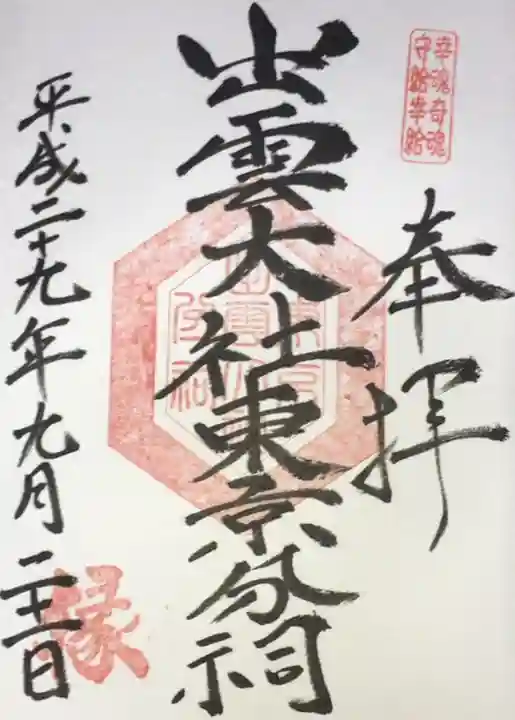 幸魂奇魂
守給幸給
奉拝
出雲大社東京分祠
平成二十九年九月二十二日
縁